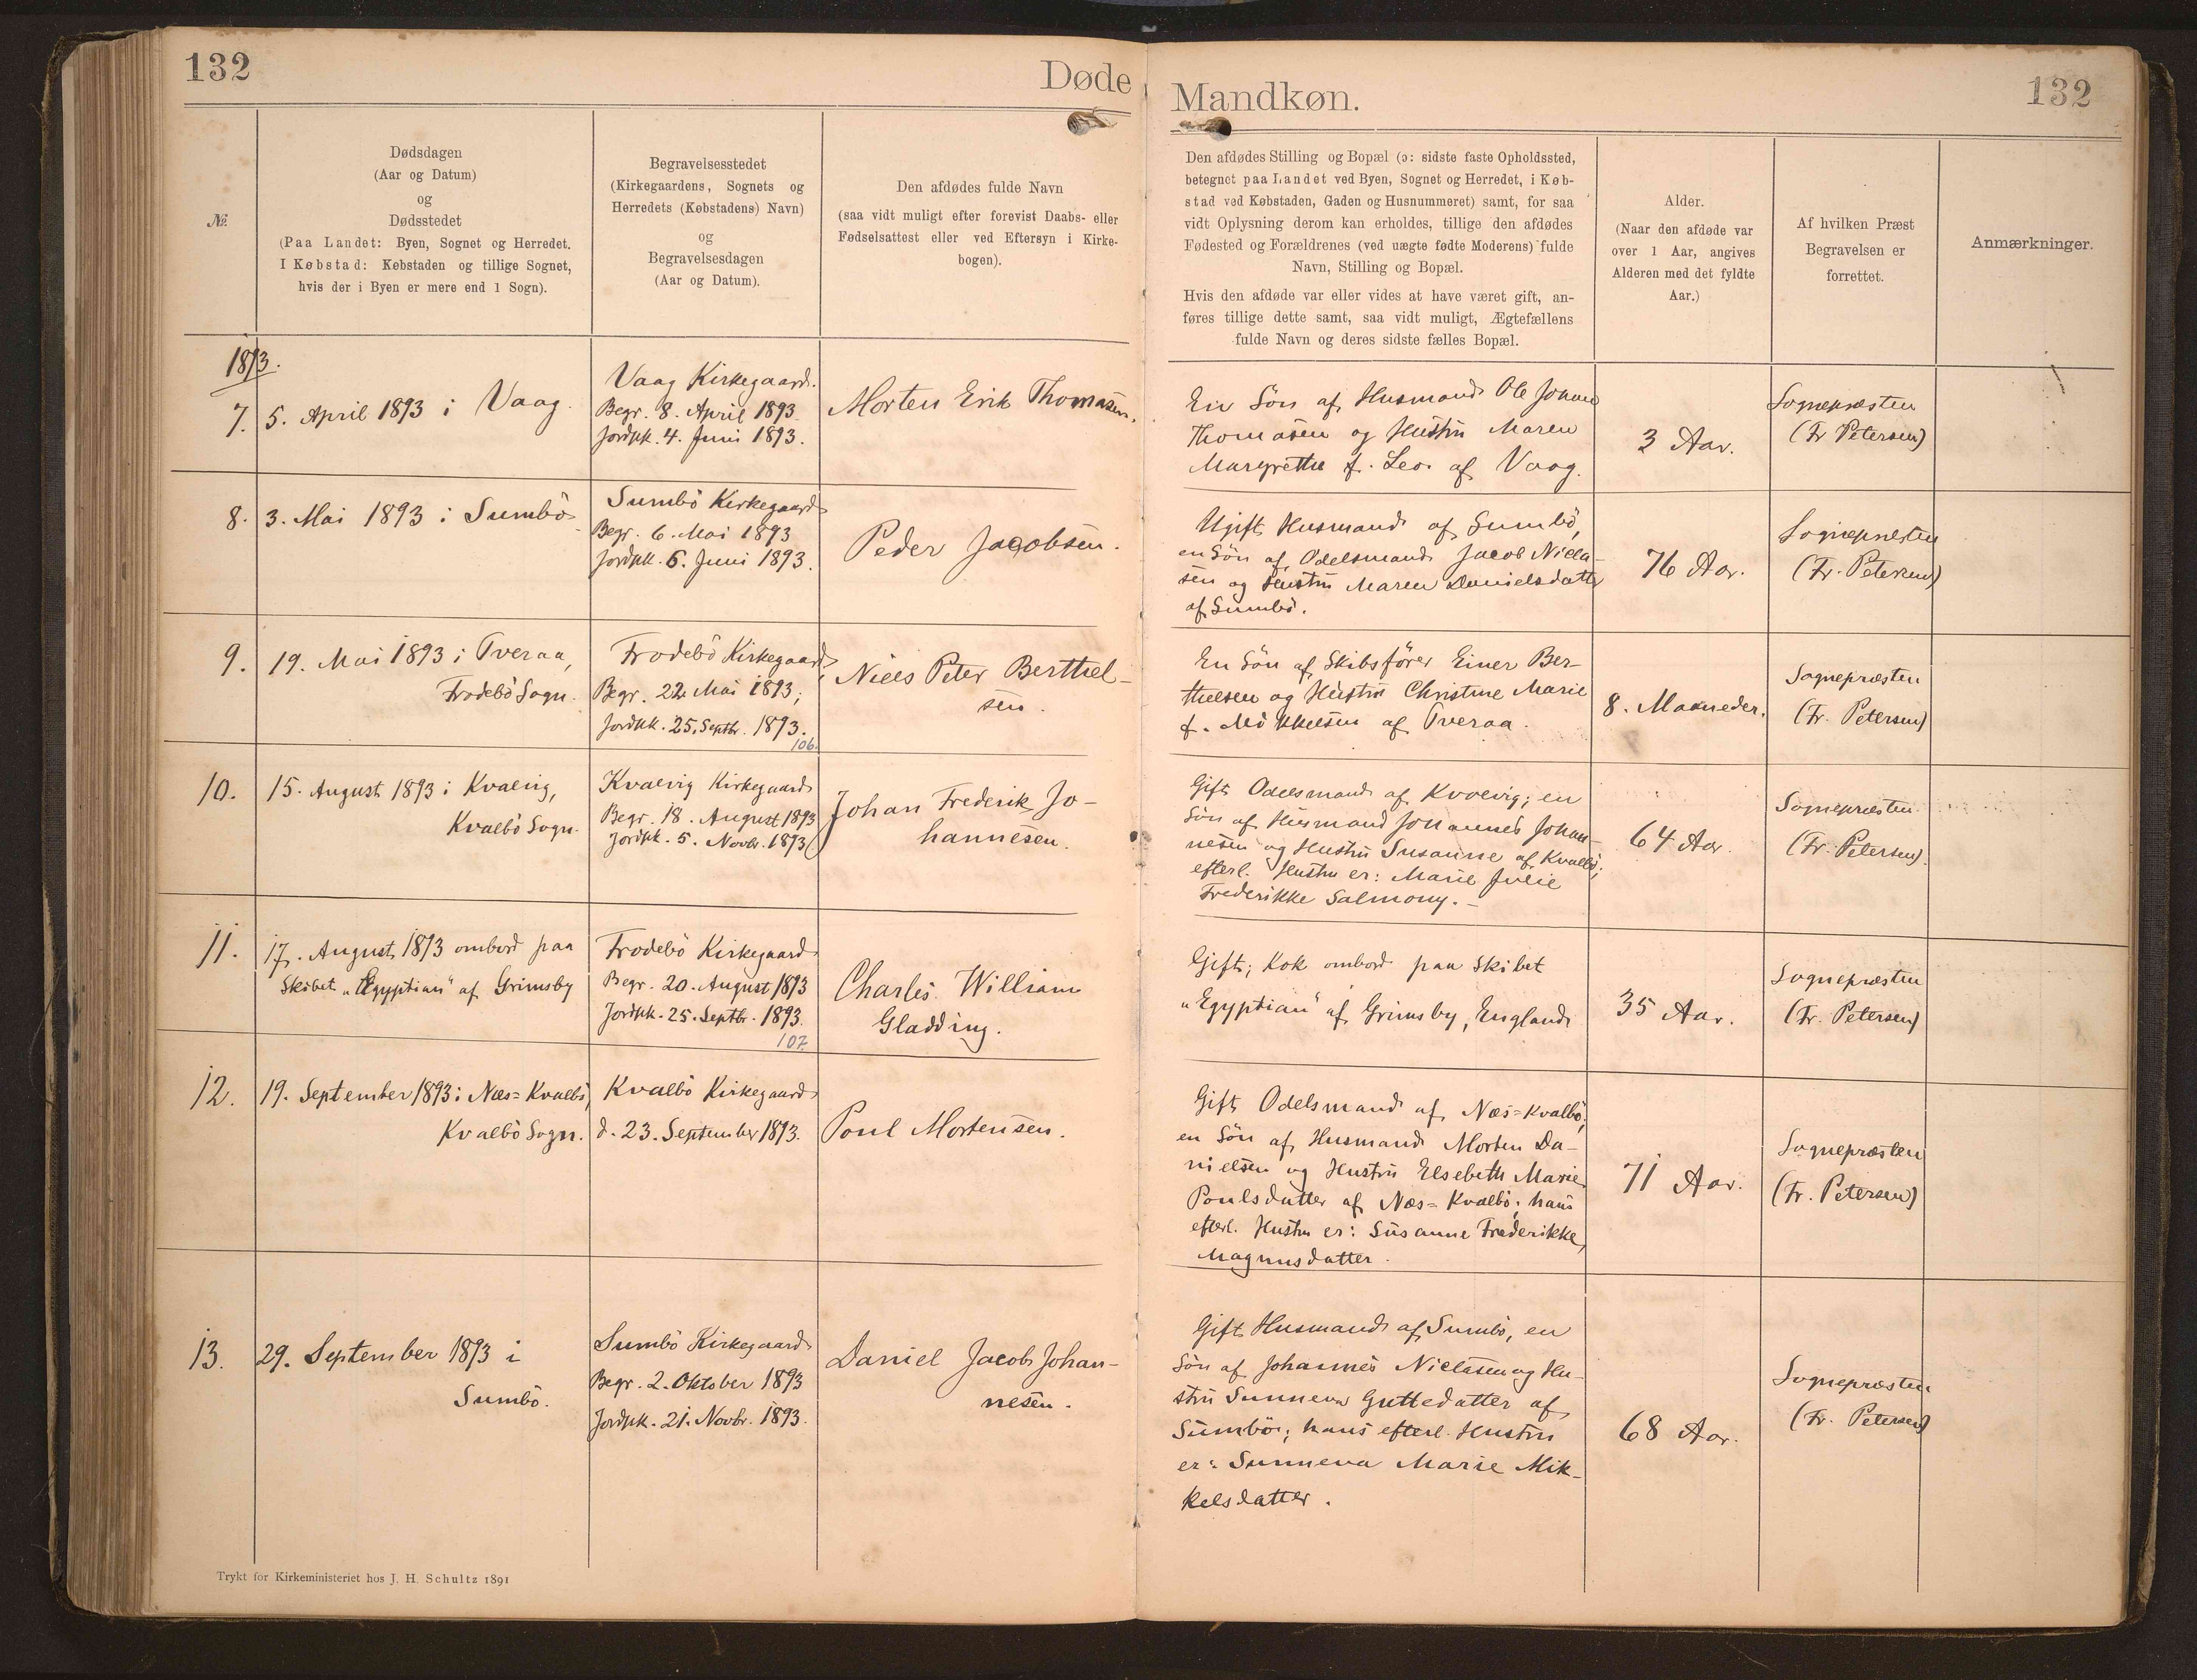 132
Døde
Mandkøn.
132
№
Dødsdagen
(Aar og Datum)
og
Dødsstedet
(Paa Landet: Byen, Sognet og Herredet.
I Købstad: Købstaden og tillige Sognet,
hvis der i Byen er mere end 1 Sogn).
Begravelsesstedet
(Kirkegaardens, Sognets og
Herredets (Købstadens) Navn)
og
Begravelsesdagen
(Aar og Datum).
Den afdødes fulde Navn
(saa vidt muligt efter forevist Daabs- eller
Fødselsattest eller ved Eftersyn i Kirke-
bogen).
Den afdødes Stilling og Bopæl (ɔ: sidste faste Opholdssted,
betegnet paa Landet ved Byen, Sognet og Herredet, i Køb-
stad ved Købstaden, Gaden og Husnummeret) samt, for saa
vidt Oplysning derom kan erholdes, tillige den afdødes
Fødested og Forældrenes (ved uægte fødte Moderens) fulde
Navn, Stilling og Bopæl.
Hvis den afdøde var eller vides at have været gift, an-
føres tillige dette samt, saa vidt muligt, Ægtefællens
fulde Navn og deres sidste fælles Bopæl.
Alder.
(Naar den afdøde var
over 1 Aar, angives
Alderen med det fyldte
Aar.)
Af hvilken Præst
Begravelsen er
forrettet.
Anmærkninger.
1893.
7.
5. April 1893 i Vaag.
Vaag Kirkegaard.
Begr. 8. April 1893
Jordpk. 4. Juni 1893.
Morten Erik Thomasen.
En Søn af Husmand Ole Johan
Thomasen og Hustru Maren
Margrethe f. Leo. af Vaag.
3 Aar.
Sognepræsten
(Fr Petersen)
8.
3. Mai 1893 i Sumbö
Sumbö Kirkegaard
Begr. 6. Mai 1893
Jordpk. 6. Juni 1893.
Peder Jacobsen.
Ugift Husmand af Sumbö,
en Søn af Odelsmand Jacob Niela-
sen og Hustru Maren Danielsdatter
af Sumbö.
76 Aar.
Sognepræsten
(Fr. Petersen)
9.
19. Mai 1893 i Tveraa,
Frodebö Sogn.
Frodebö Kirkegaard,
Begr. 22. Mai 1893;
Jordpk. 25. Septbr. 1893.
106.
Niels Peter Berthel-
sen.
En Søn af Skibsfører Einer Ber-
thelsen og Hustru Christine Marie
f. Mikkelsen af Tveraa.
8. Maaneder.
Sognepræsten
(Fr. Petersen)
10.
15. August 1893 i Kvalvig,
Kvalbö Sogn.
Kvalvig Kirkegaard
Begr. 18. August 1893
Jordpk. 5. Novbr. 1893
Johan Frederik Jo-
hannesen.
Gift Odelsmand af Kvalvig; en
Søn af Husmand Johannes Johan-
nesen og Hustru Susanne af Kvalbö;
efterl. Hustru er: Marie Julie
Frederikke Salmony. –
64 Aar.
Sognepræsten
(Fr. Petersen).
11.
17. August 1893 ombord paa
Skibet „Egyptian" af Grimsby
Frodebö Kirkegaard
Begr. 20. August 1893
Jordpk. 25. Septbr. 1893.
107.
Charles William
Gladding.
Gift; Kok ombord paa Skibet
„Egyptian" af Grimsby, England
35 Aar.
Sognepræsten
(Fr. Petersen)
12.
19. September 1893 i Næs=Kvalbö,
Kvalbö Sogn.
Kvalbö Kirkegaard
d. 23. September 1893.
Poul Mortensen.
Gift Odelsmand af Næs=Kvalbö;
en Søn af Husmand Morten Da-
nielsen og Hustru Elsebeth Marie
Poulsdatter af Næs=Kvalbö; hans
efterl. Hustru er: Susanne Frederikke
Magnusdatter.
71 Aar.
Sognepræsten
(Fr. Petersen)
13.
29. September 1893 i
Sumbö.
Sumbö Kirkegaard
Begr. 2. Oktober 1893
Jordpk. 21. Novbr. 1893.
Daniel Jacob Johan-
nesen.
Gift Husmand af Sumbö, en
Søn af Johannes Nielasen og Hu-
stru Sunneva Guttedatter af
Sumbö; hans efterl. Hustru
er: Sunneva Marie Mik-
kelsdatter.
68 Aar.
Sognepræsten
(Fr. Petersen)
Trykt for Kirkeministeriet hos J. H. Schultz 1891